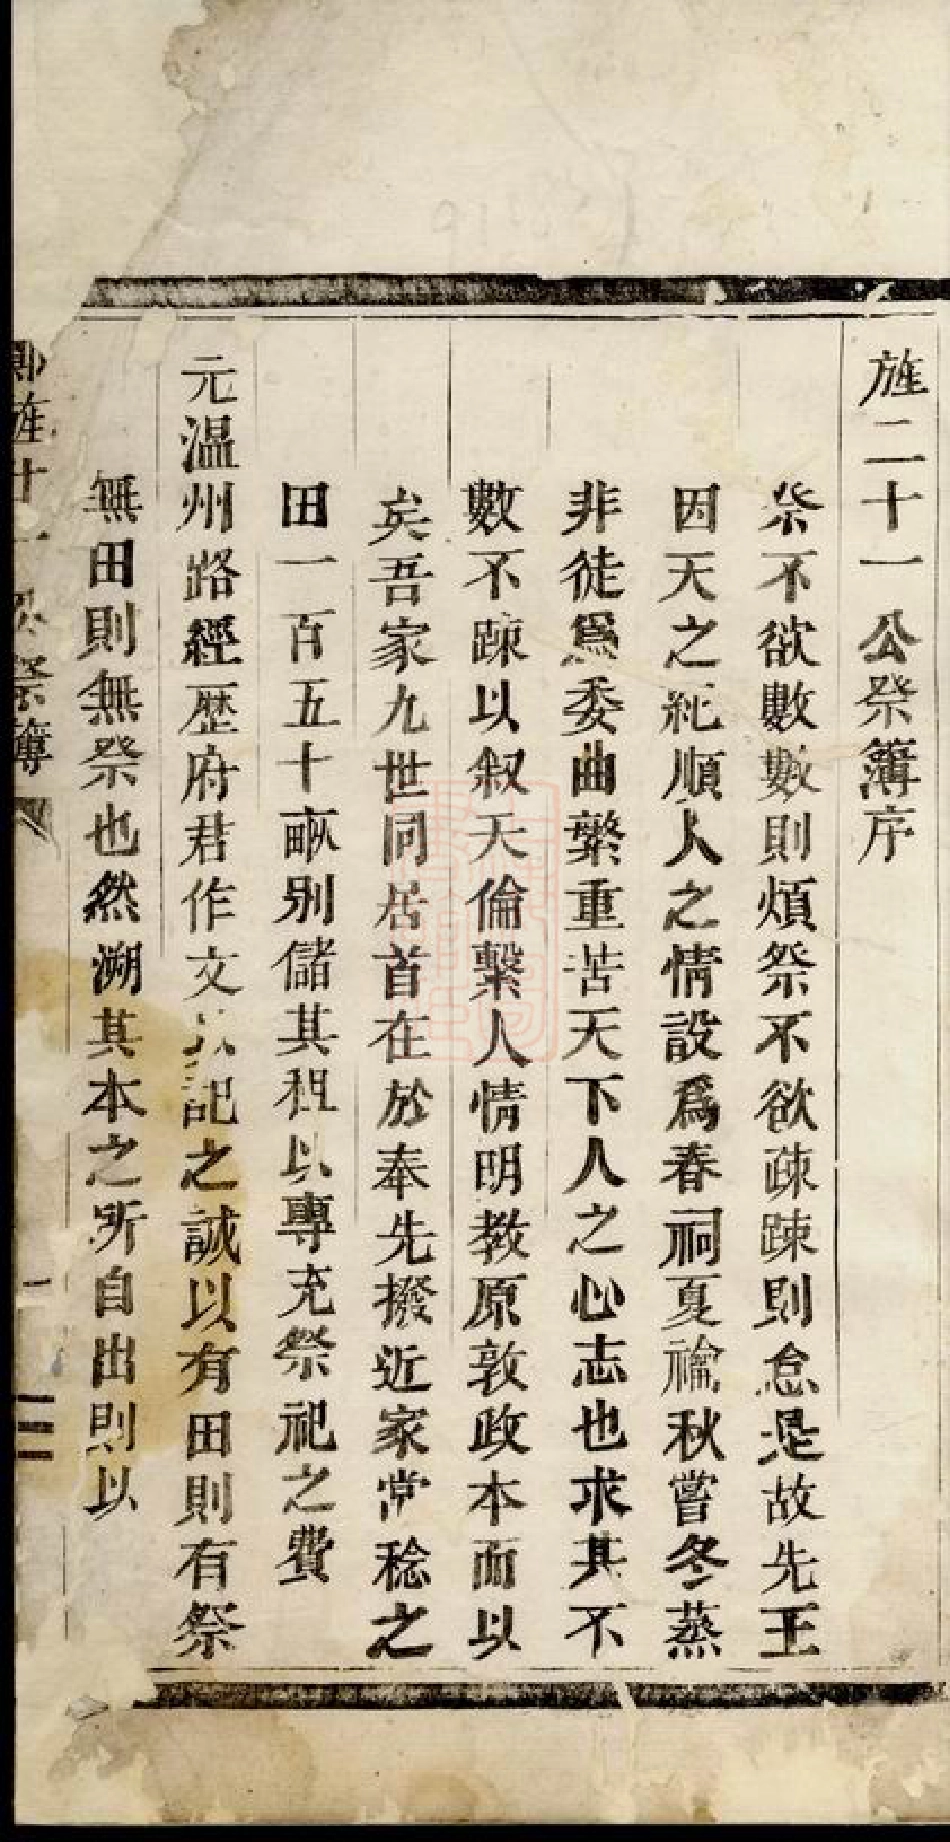 旌二十一 公祭簿序
祭不欲數數則煩祭不欲疎疎則怠是故先王
因天之紀順人之情設爲春祠夏禴秋嘗冬蒸
非徒爲委曲繁重苦天下人之心志也求其不
數不疎以叙天倫繫人情明教原敦政本而以
矣吾家九世同居首在於奉先撥近家常稔之
田一百五十畝别儲其租以專充祭祀之費
元温州路經歴府君作文以記之誠以有田則有祭
無田則無祭也然溯其本之所自出則以
鄭旌廿一公祭簿
一